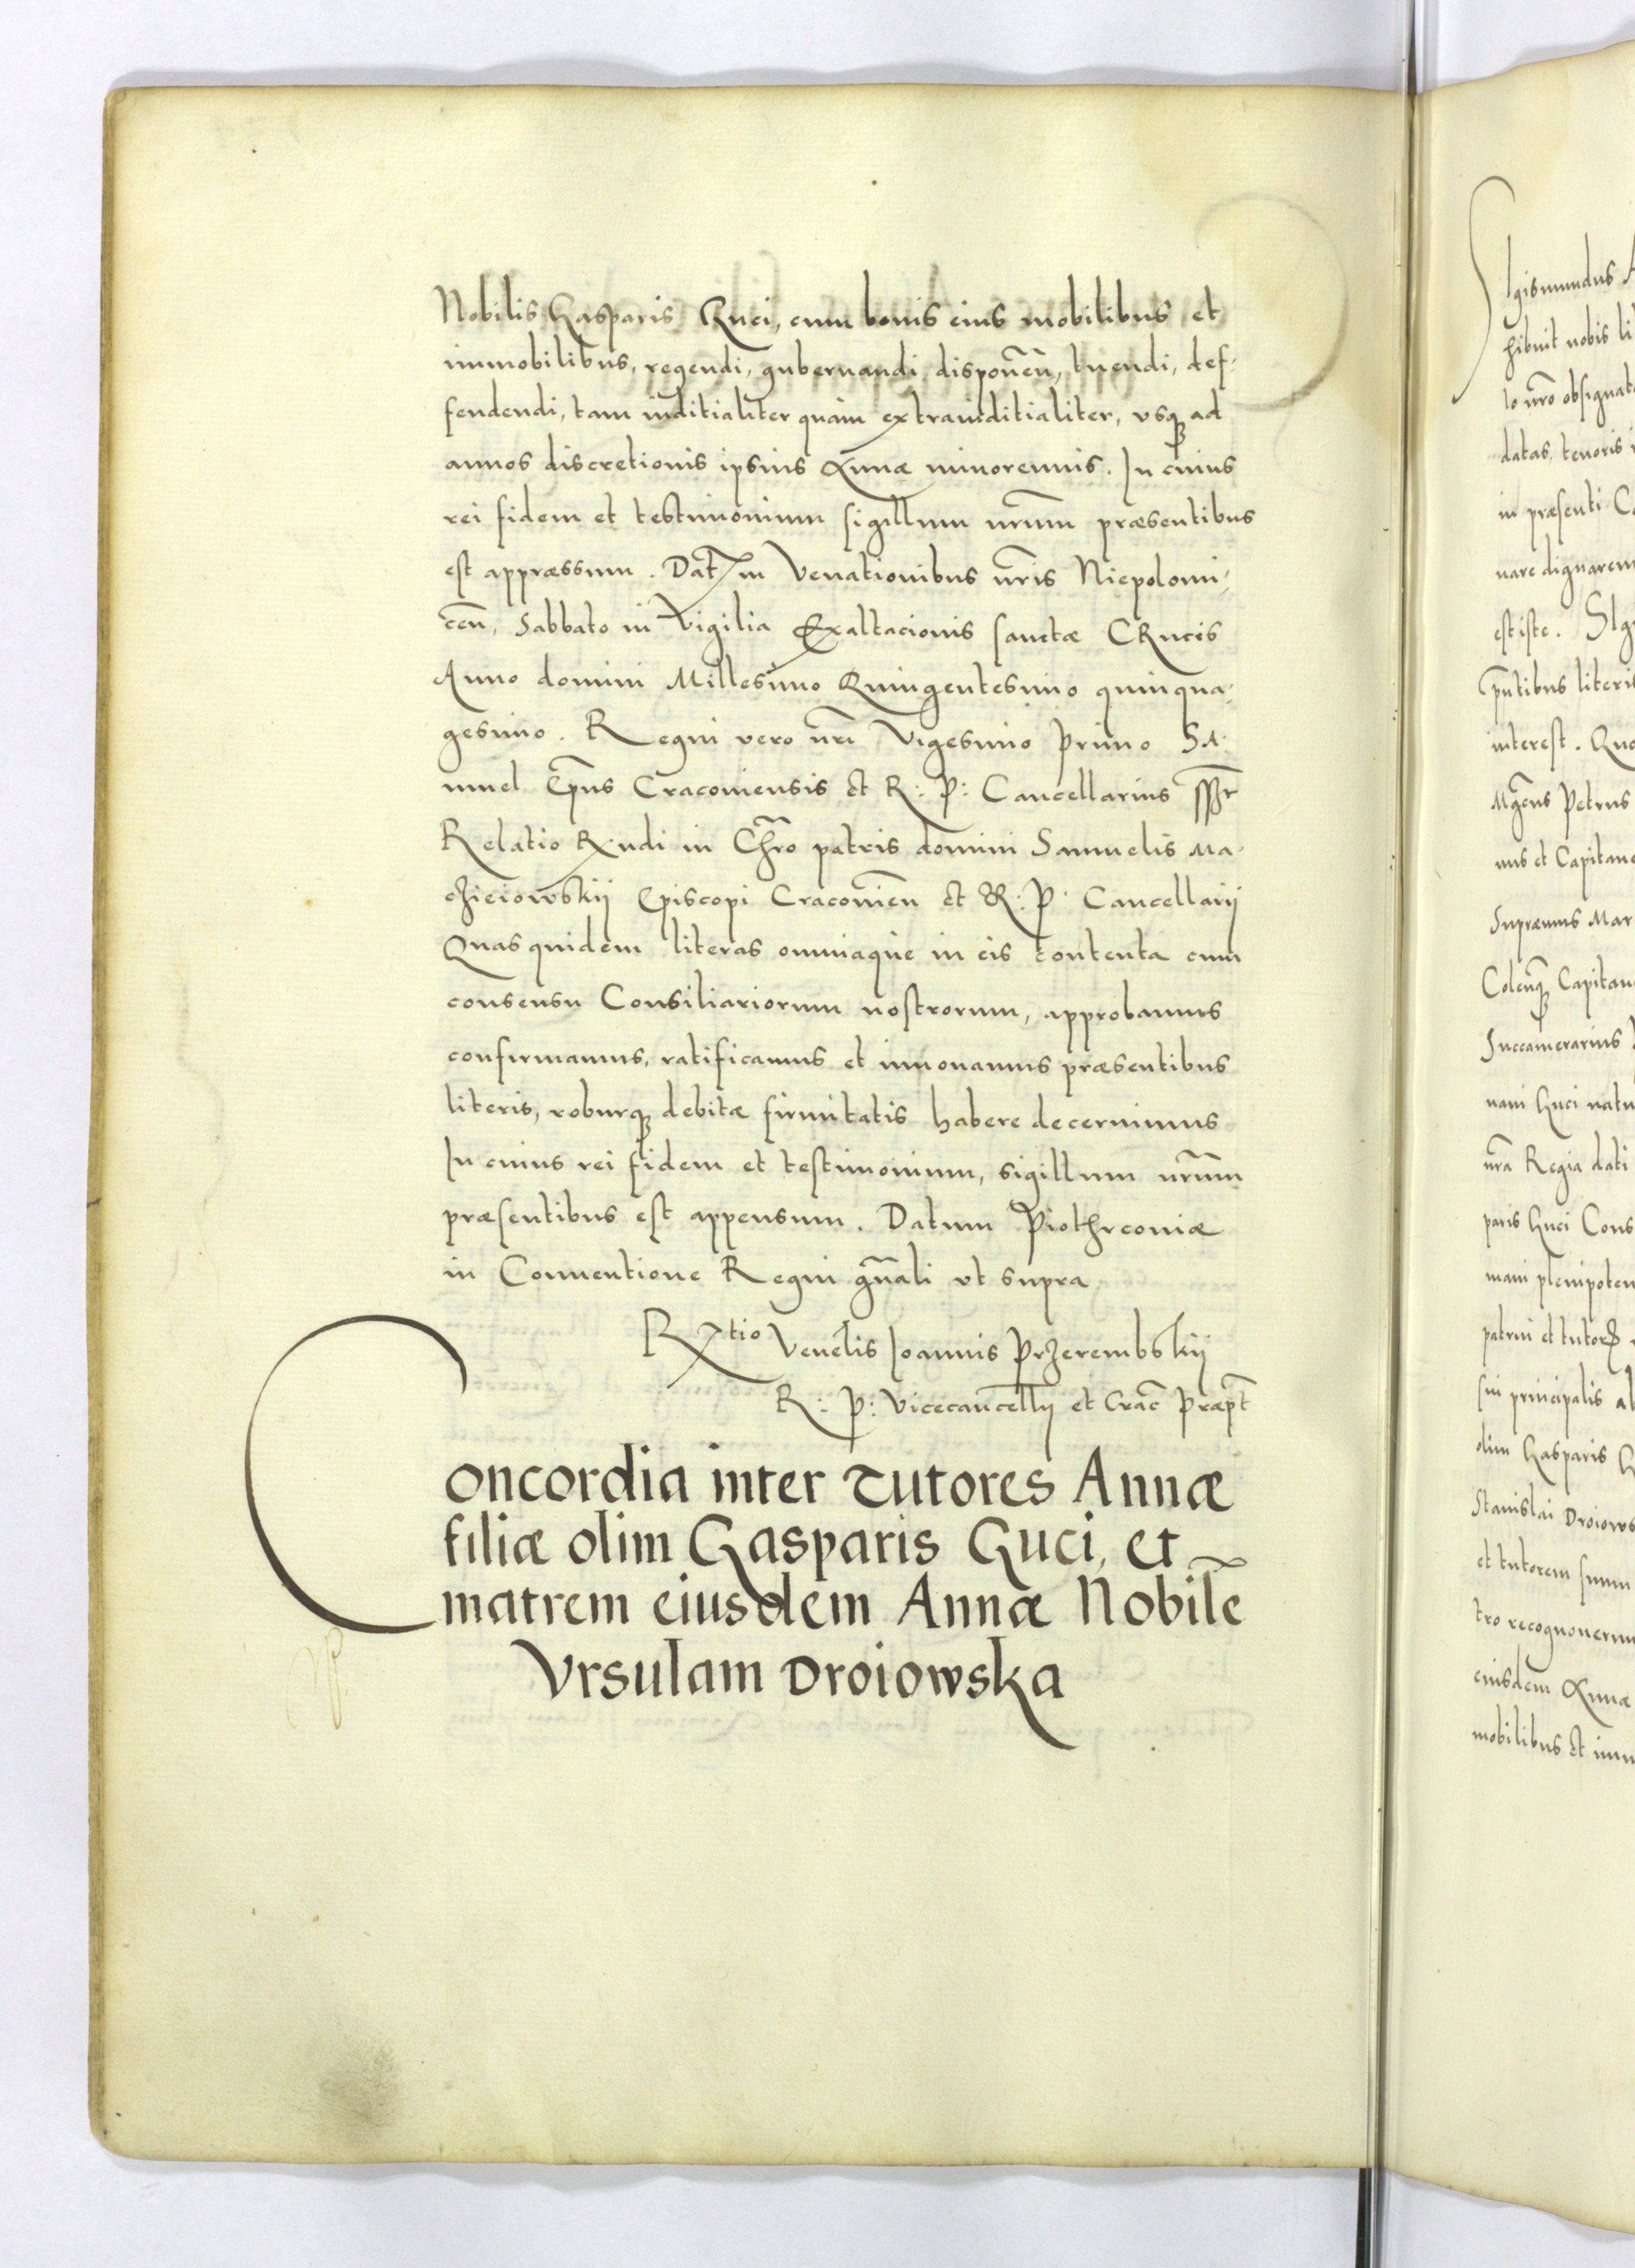 Nobilis Gasparis Guci, cum bonis eius mobilibus et
immobilibus, regendi, gubernandi, disponen̄, tuendi, def-
fendendi, tam iuditialiter quàm extraiuditialiter, vsq ad
annos discretionis ipsius Annæ minorennis. In cuius
rei fidem et testimonium sigillum nr̄um præsentibus
est appræssum. Dat̄ in Venationibus nr̄is Niepolomi-
cen̄, Sabbato in Vigilia Exaltacionis sanctæ CRucis
Anno domini Millesimo Quingentesimo quinqua-
gesimo. Regni vero nr̄i Vigesimo primo SA-
muel Ep̄us Cracouiensis et R: P: Cancellarius
Relatio R̄ndi in Chr̄o patris domini Samuelis Ma-
czieiowskij Episcopi Cracouien̄ et R: P: Cancellarij
Quas quidem literas omniaque in eis contenta cum
consensu Consiliariorum nostrorum, approbamus
confirmamus, ratificamus et innouamus præsentibus
literis, roburq debitæ firmitatis habere decernimus
In cuius rei fidem et testimonium, sigillum nr̄um
præsentibus est appensum. Datum Piothrcouiæ
in Conuentione Regni gn̄ali vt supra
R̄tio Venēlis Ioannis Przerembskij
R: P: Vicecancellij et Crac̄ Præpt̄
Concordia inter Tutores Annæ
filiæ olim Gasparis Guci, et
matrem eiusdem Annæ Nobilē
Vrsulam Droiowska
Sigismundus A
hibuit nobis li
lo nr̄o obsignat
datas, tenoris
in præsenti C
nare dignarem
est iste. SIg
pn̄tibus literis
interest. Quo
Mgc̄us Petrus
nus et Capitane
Supræmus Mar
Colen̄q Capitan
Succamerarius
nam Guci natu
nr̄a Regia dati
paris Guci Cons
mam plenipoten
patrui et tutor
sui principalis al
olim Gasparis G
Stanislai Droiows
et tutorem suum
tro recognouerun
eiusdem Annæ
mobilibus et imm